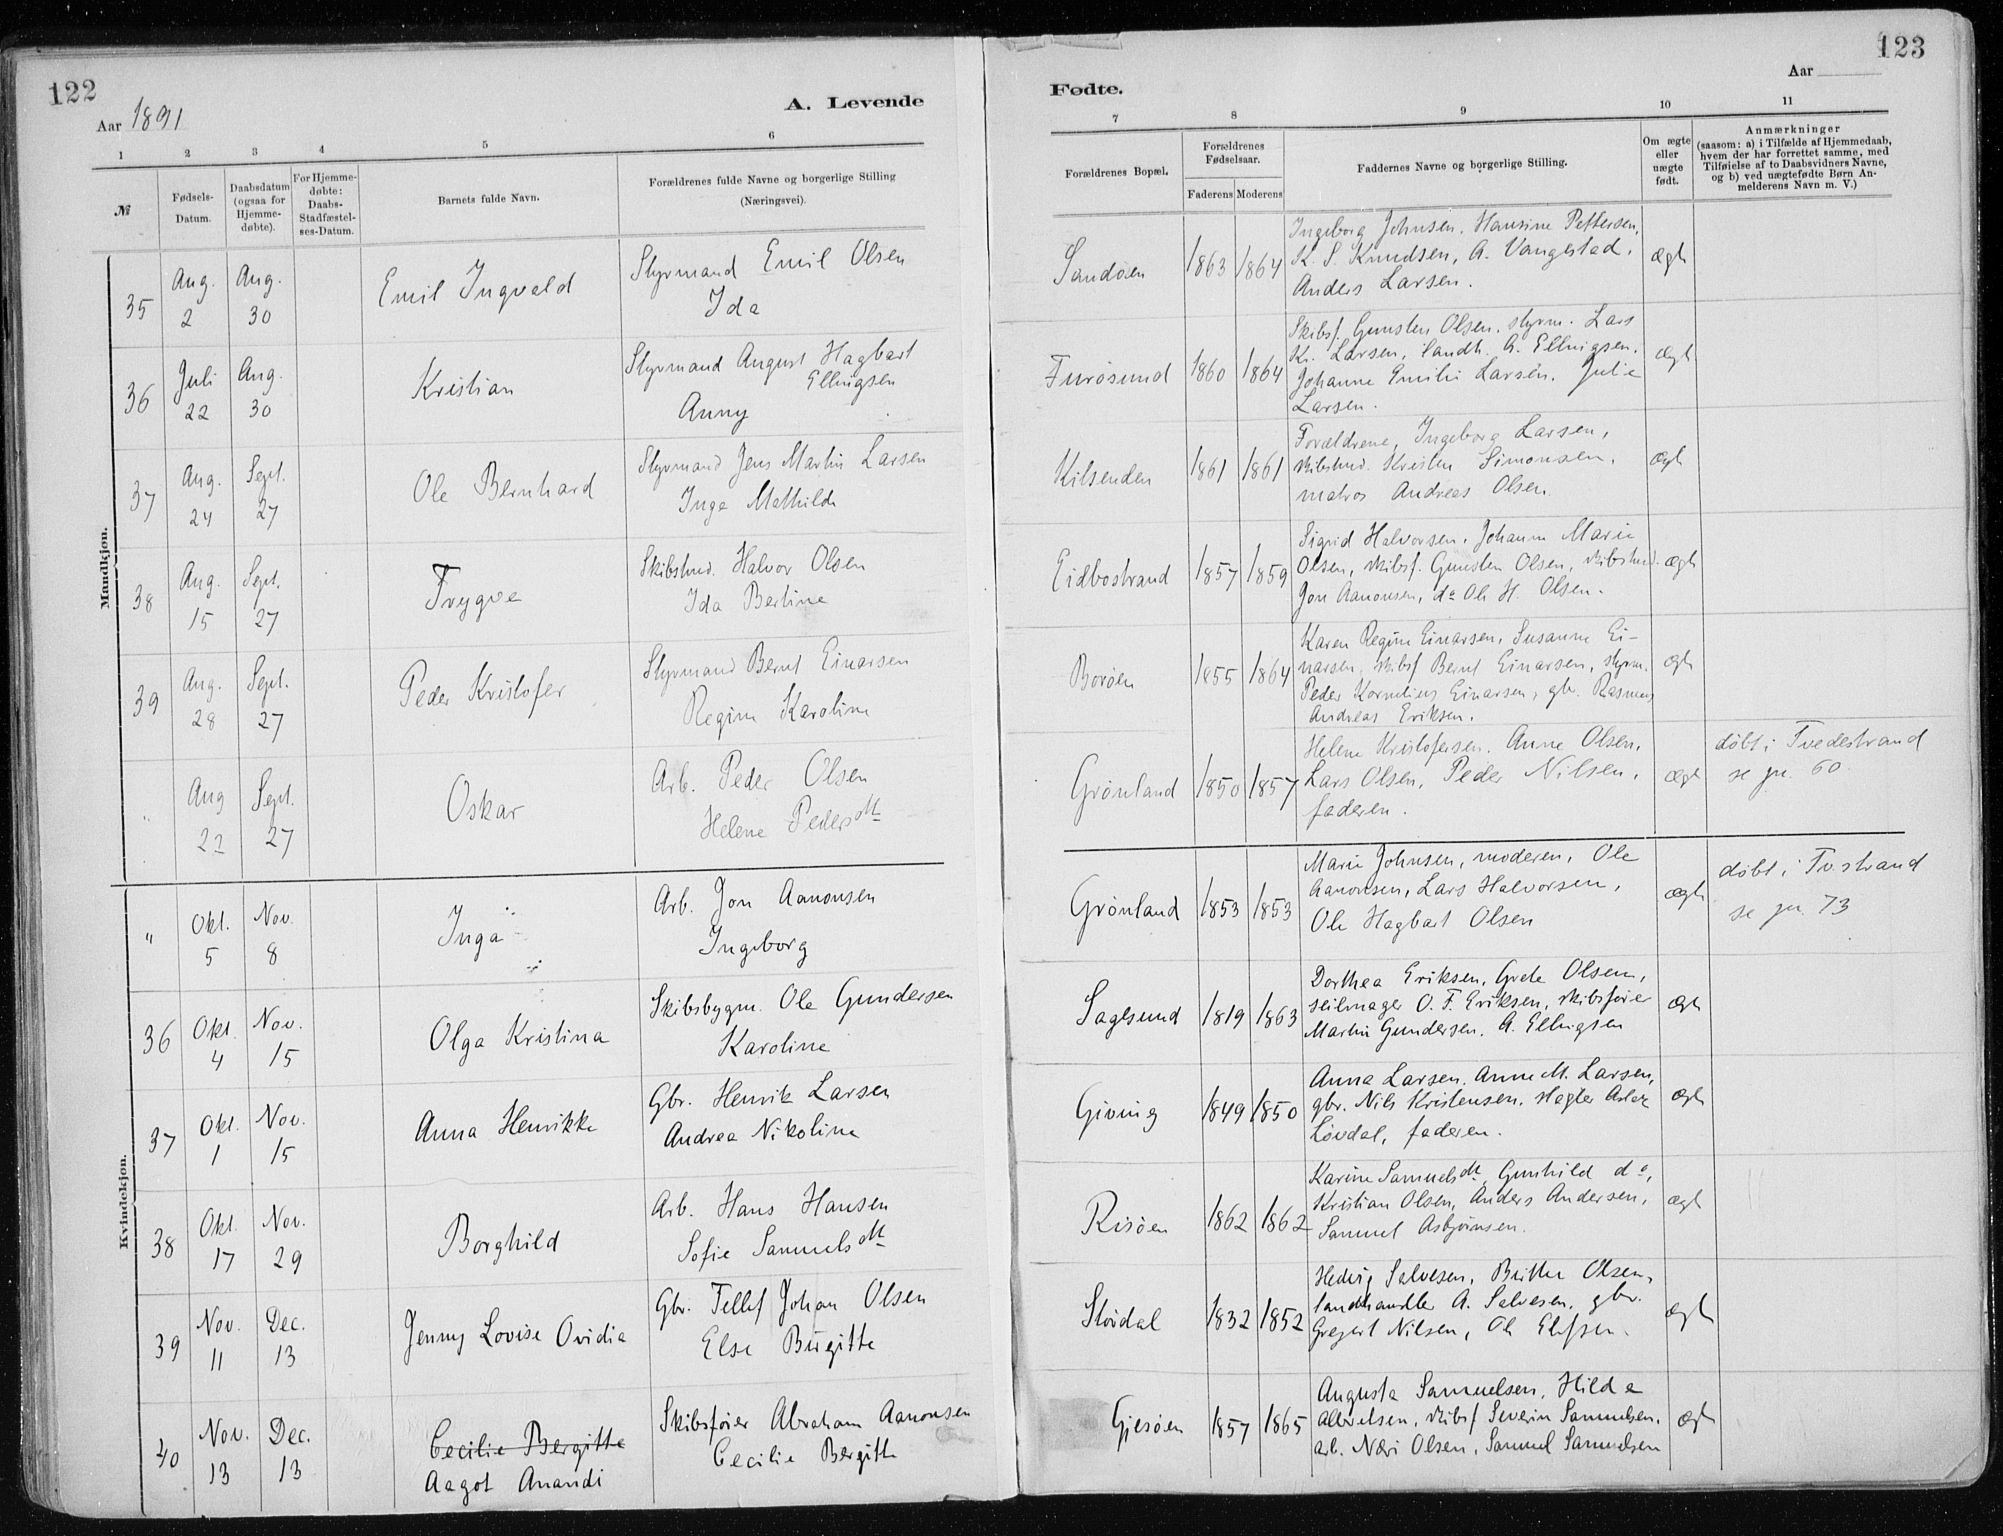 122
Aar 1891
A. Levende
1 2 3 4 5 6
№
Fødsels-
Datum.
Daabsdatum
(ogsaa for
Hjemme-
døbte).
For Hjemme-
døbte:
Daabs-
Stadfæstel-
ses-Datum.
Barnets fulde Navn.
Forældrenes fulde Navne og borgerlige Stilling
(Næringsvei).
Mandkjøn.
35 Aug. 2 Aug. 30 Emil Ingvald
Styrmand Emil Olsen
Ida
36 Juli 22 Aug. 30 Kristian
Styrmand August Hagbart
Ellingsen
Anny
37 Aug. 24 Sept. 27 Ole Bernhard
Styrmand Jens Martin Larsen
Inga Mathilde
38 Aug. 15 Sept. 27 Trygve
Skibstmd. Halvor Olsen
Ida Bertine
39 Aug. 28 Sept. 27 Peder Kristofer
Styrmand Bernt Einarsen
Regine Karoline
" Aug 22 Sept. 27 Oskar
Arb. Peder Olsen
Helene Pedersdtt
Kvindekjøn.
" Okt. 5 Nov. 8 Inga
Arb. Jon Aanonsen
Ingeborg
36 Okt. 4 Nov. 15 Olga Kristina
Skibsbygm. Ole Gundersen
Karoline
37 Okt. 1 Nov. 15 Anna Henrikke
Gbr. Henrik Larsen
Andrea Nikoline
38 Okt. 17 Nov. 29 Borghild
Arb. Hans Hansen
Sofie Samuelsdtt
39 Nov. 11 Dec. 13 Jenny Lovise Ovidia
Gbr. Tellef Johan Olsen
Else Birgitte
40 Nov. 13 Dec. 13 Cecilie Bergitte
Aagot Anandi
Skibsfører Abraham Aanonsen
Cecilie Bergitte
123
Fødte.
Aar
7 8 9 10 11
Forældrenes Bopæl.
Forældrenes
Fødselsaar.
Faderens Moderens
Faddernes Navne og borgerlige Stilling.
Om ægte
eller
uægte
født.
Anmærkninger
(saasom: a) i Tilfælde af Hjemmedaab,
hvem der har forrettet samme, med
Tilføielse af to Daabsvidners Navne,
og b) ved uægtefødte Børn An-
melderens Navn m. V.)
Sandøen 1863 1864
Ingeborg Johnsen, Hansine Pettersen,
K. S. Knudsen, A. Vangestad,
Anders Larsen.
ægte
Furøsund 1860 1864
Skibsf. Gunsten Olsen, styrm. Lars
Kr. Larsen, landh. A. Ellingsen,
Johanne Emilie Larsen, Julie
Larsen.
ægte
Kilsenden 1861 1861
Forældrene, Ingeborg Larsen,
skibstmd. Kristen Simonsen,
matros Andreas Olsen.
ægte
Eidbostrand 1857 1859
Sigrid Halvorsen, Johanne Marie
Olsen, skibsf. Gunsten Olsen, skibstmd.
Jon Aanonsen, do Ole H. Olsen.
ægte
Borøen 1855 1864
Karen Regine Einarsen, Susanne Ei-
narsen, skibsf Bernt Einarsen, styrm.
Peder Kornelius Einarsen, gbr. Rasmus
Andreas Eriksen.
ægte
Grønland 1850 1857
Helene Kristofersen, Anne Olsen,
Lars Olsen, Peder Nilsen,
faderen.
ægte
døbt i Tvedestrand
se pr. 60.
Grønland 1853 1853
Marie Johnsen, moderen, Ole
Aanonsen, Lars Halvorsen,
Ole Hagbart Olsen
ægte
døbt i Tv.strand
se pr. 73
Sagesund 1819 1863
Dorthea Eriksen, Grete Olsen,
seilmager O. F. Eriksen, skibsfører
Martin Gundersen, A. Ellingsen
ægte
Giving 1849 1850
Anna Larsen, Anne M. Larsen,
gbr. Nils Kristensen, slagter
Løvdal, faderen.
ægte
Risøen 1862 1862
Karine Samuelsdtt, Gunhild do,
Kristian Olsen, Anders Andersen,
Samuel Asbjørnsen.
ægte
Slødal 1832 1852
Hedvig Salvesen, Birthe Olsen,
landhandler A. Salvesen, gbr.
Gregert Nilsen, Ole Elefsen.
ægte
Gjesøen 1857 1865
Augusta Samuelsen, Hilda
Albretsen, skibsf Severin Samuelsen,
arb. Næri Olsen, Samuel Samuelsen
ægte